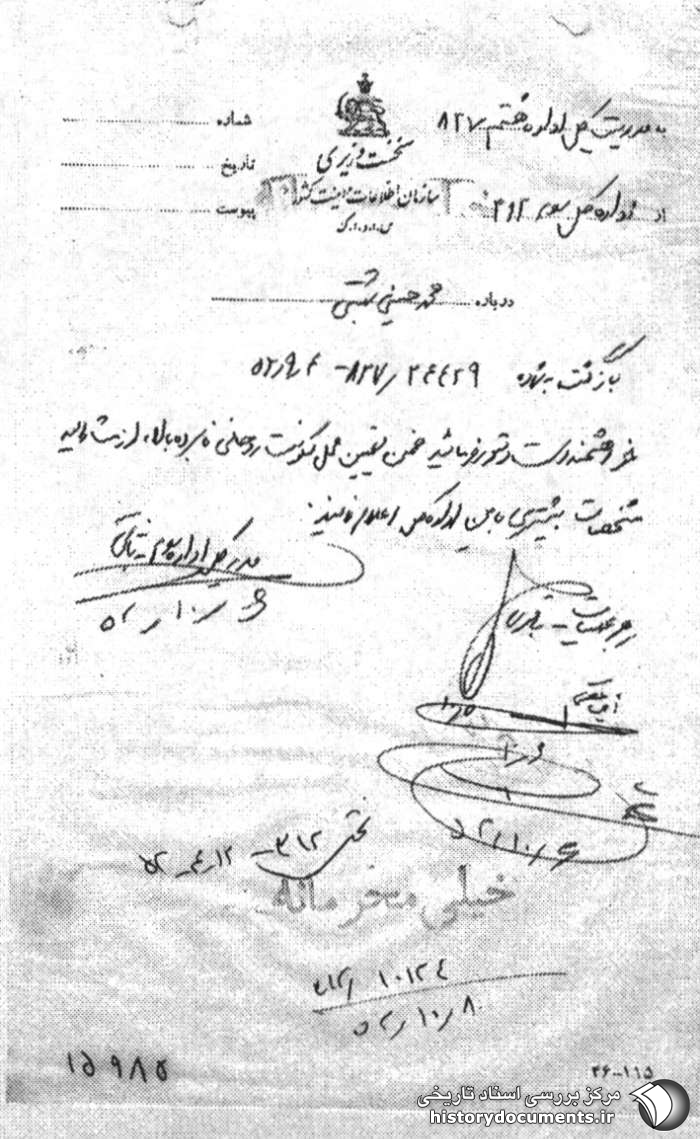 به مدیریت کل اداره هشتم ۸۲۷
شماره
نخست وزیری
تاریخ
سازمان اطلاعات و امنیت کشور
از اداره کل سوم ۳۱۲
پیوست
س.ا.و.ا.ک
درباره محمد حسینی بهشتی
بازگشت به شماره ۲۴۴۲۹/ ۸۲۷ - ۵۲/۹/۴
خواهشمند است دستور فرمائید ضمن تعیین محل سکونت روحانی نامبرده بالا، از مشارالیه
مشخصات بیشتری به این اداره کل اعلام نمایند.
مدیر کل اداره سوم - ثابتی
۵۲/۱۰/۶
رهبر عملیات
۵۲/۱۰/۶
بخش ۳۱۲
خیلی محرمانه
۳۱۲/ ۱۰۱۲۴
۵۲/۱۰/۸
۱۵۹۸۵
۳۶-۱۱۵
مرکز بررسی اسناد تاریخی
historydocuments.ir